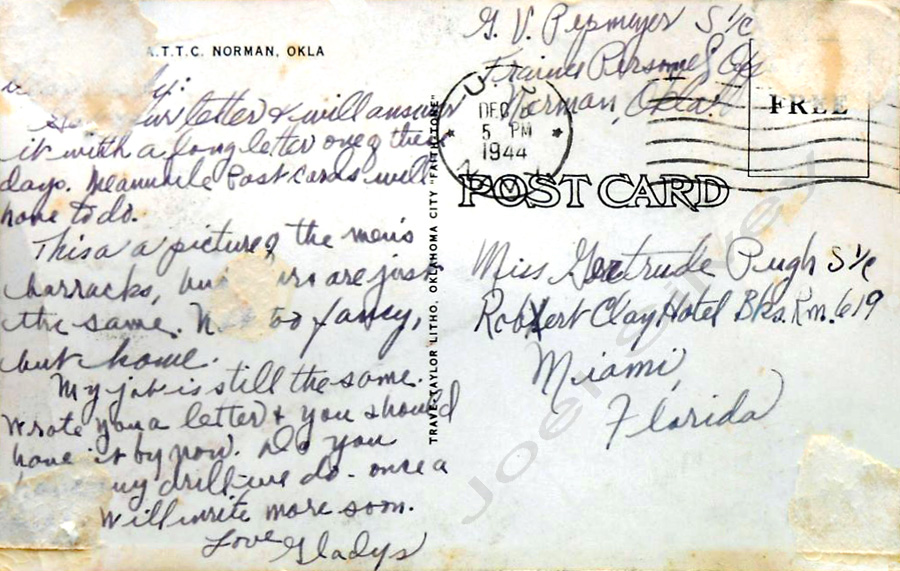 A.T.T.C. NORMAN, OKLA
letter & will answer
it with a long letter one of these
days. Meanwhile Post cards will
have to do.
This a a picture of the men's
barracks, but are just
the same. Not too fancy,
but home.
My job is still the same.
Wrote you a letter & you should
have it by now. Do you
any drill we do - once a
Will write more soon.
Love Gladys
TRAVE-TAYLOR LITHO, OKLAHOMA CITY "FAITHTONE"
G. V. Pepmeyer S 1/c
Trainee Personnel Off
Norman, Okla.
U
DEC
5 PM
1944
FREE
POST CARD
Miss Gertrude Pugh S 1/c
Robert Clay Hotel Bks. Rm. 619
Miami,
Florida